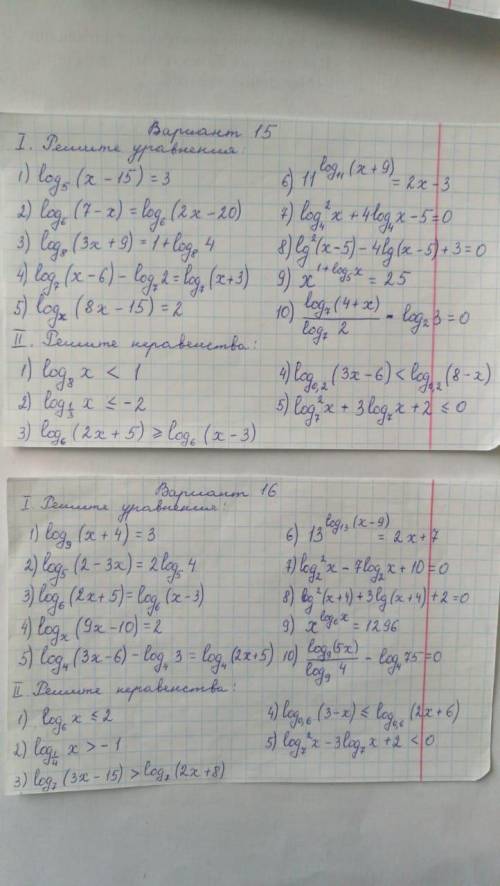 Вариант 15
I. Решите уравнения:
1) log₅(x − 15) = 3
2) log₆(7 − x) = log₆(2x − 20)
3) log₈(3x + 9) = 1 + log₈ 4
4) log₇(x − 6) − log₇ 2 = log₇(x + 3)
5) logₓ(8x − 15) = 2
6) 11^(log₁₁(x + 9)) = 2x − 3
7) log₄² x + 4 log₄ x − 5 = 0
8) lg²(x − 5) − 4 lg(x − 5) + 3 = 0
9) x^(1 + log₅ x) = 25
10) log₇(4 + x) / log₇ 2 − log₂ 3 = 0
II. Решите неравенства:
1) log₈ x < 1
2) log_(1/3) x ≤ −2
3) log₆(2x + 5) ≥ log₆(x − 3)
4) log_(0,2)(3x − 6) < log_(0,2)(8 − x)
5) log₇² x + 3 log₇ x + 2 ≤ 0
Вариант 16
I. Решите уравнения:
1) log₉(x + 4) = 3
2) log₅(2 − 3x) = 2 log₅ 4
3) log₆(2x + 5) = log₆(x − 3)
4) logₓ(9x − 10) = 2
5) log₄(3x − 6) − log₄ 3 = log₄(2x + 5)
6) 13^(log₁₃(x − 9)) = 2x + 7
7) log₂² x − 7 log₂ x + 10 = 0
8) lg²(x + 4) + 3 lg(x + 4) + 2 = 0
9) x^(log₆ x) = 1296
10) log₉(5x) / log₉ 4 − log₄ 75 = 0
II. Решите неравенства:
1) log₆ x ≤ 2
2) log_(1/4) x > −1
3) log₇(3x − 15) > log₇(2x + 8)
4) log_(0,6)(3 − x) ≤ log_(0,6)(2x + 6)
5) log₇² x − 3 log₇ x + 2 < 0